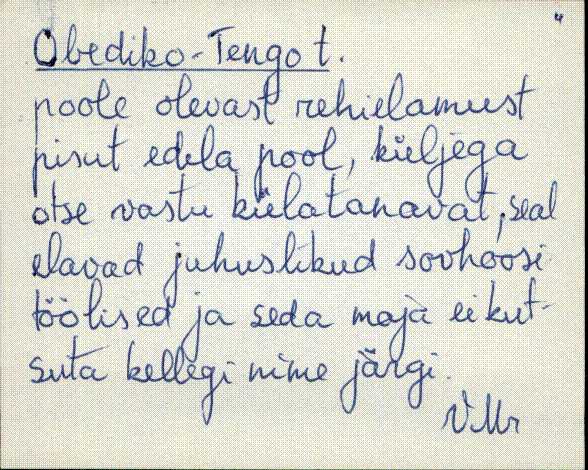 4
Obediko-Tengo t.
poole olevast rehielamust
pisut edela pool, küljega
otse vastu külatanavat, seal
elavad juhuslikud sovhoosi
töölised ja seda maja ei kut-
suta kellegi nime järgi.
VMr